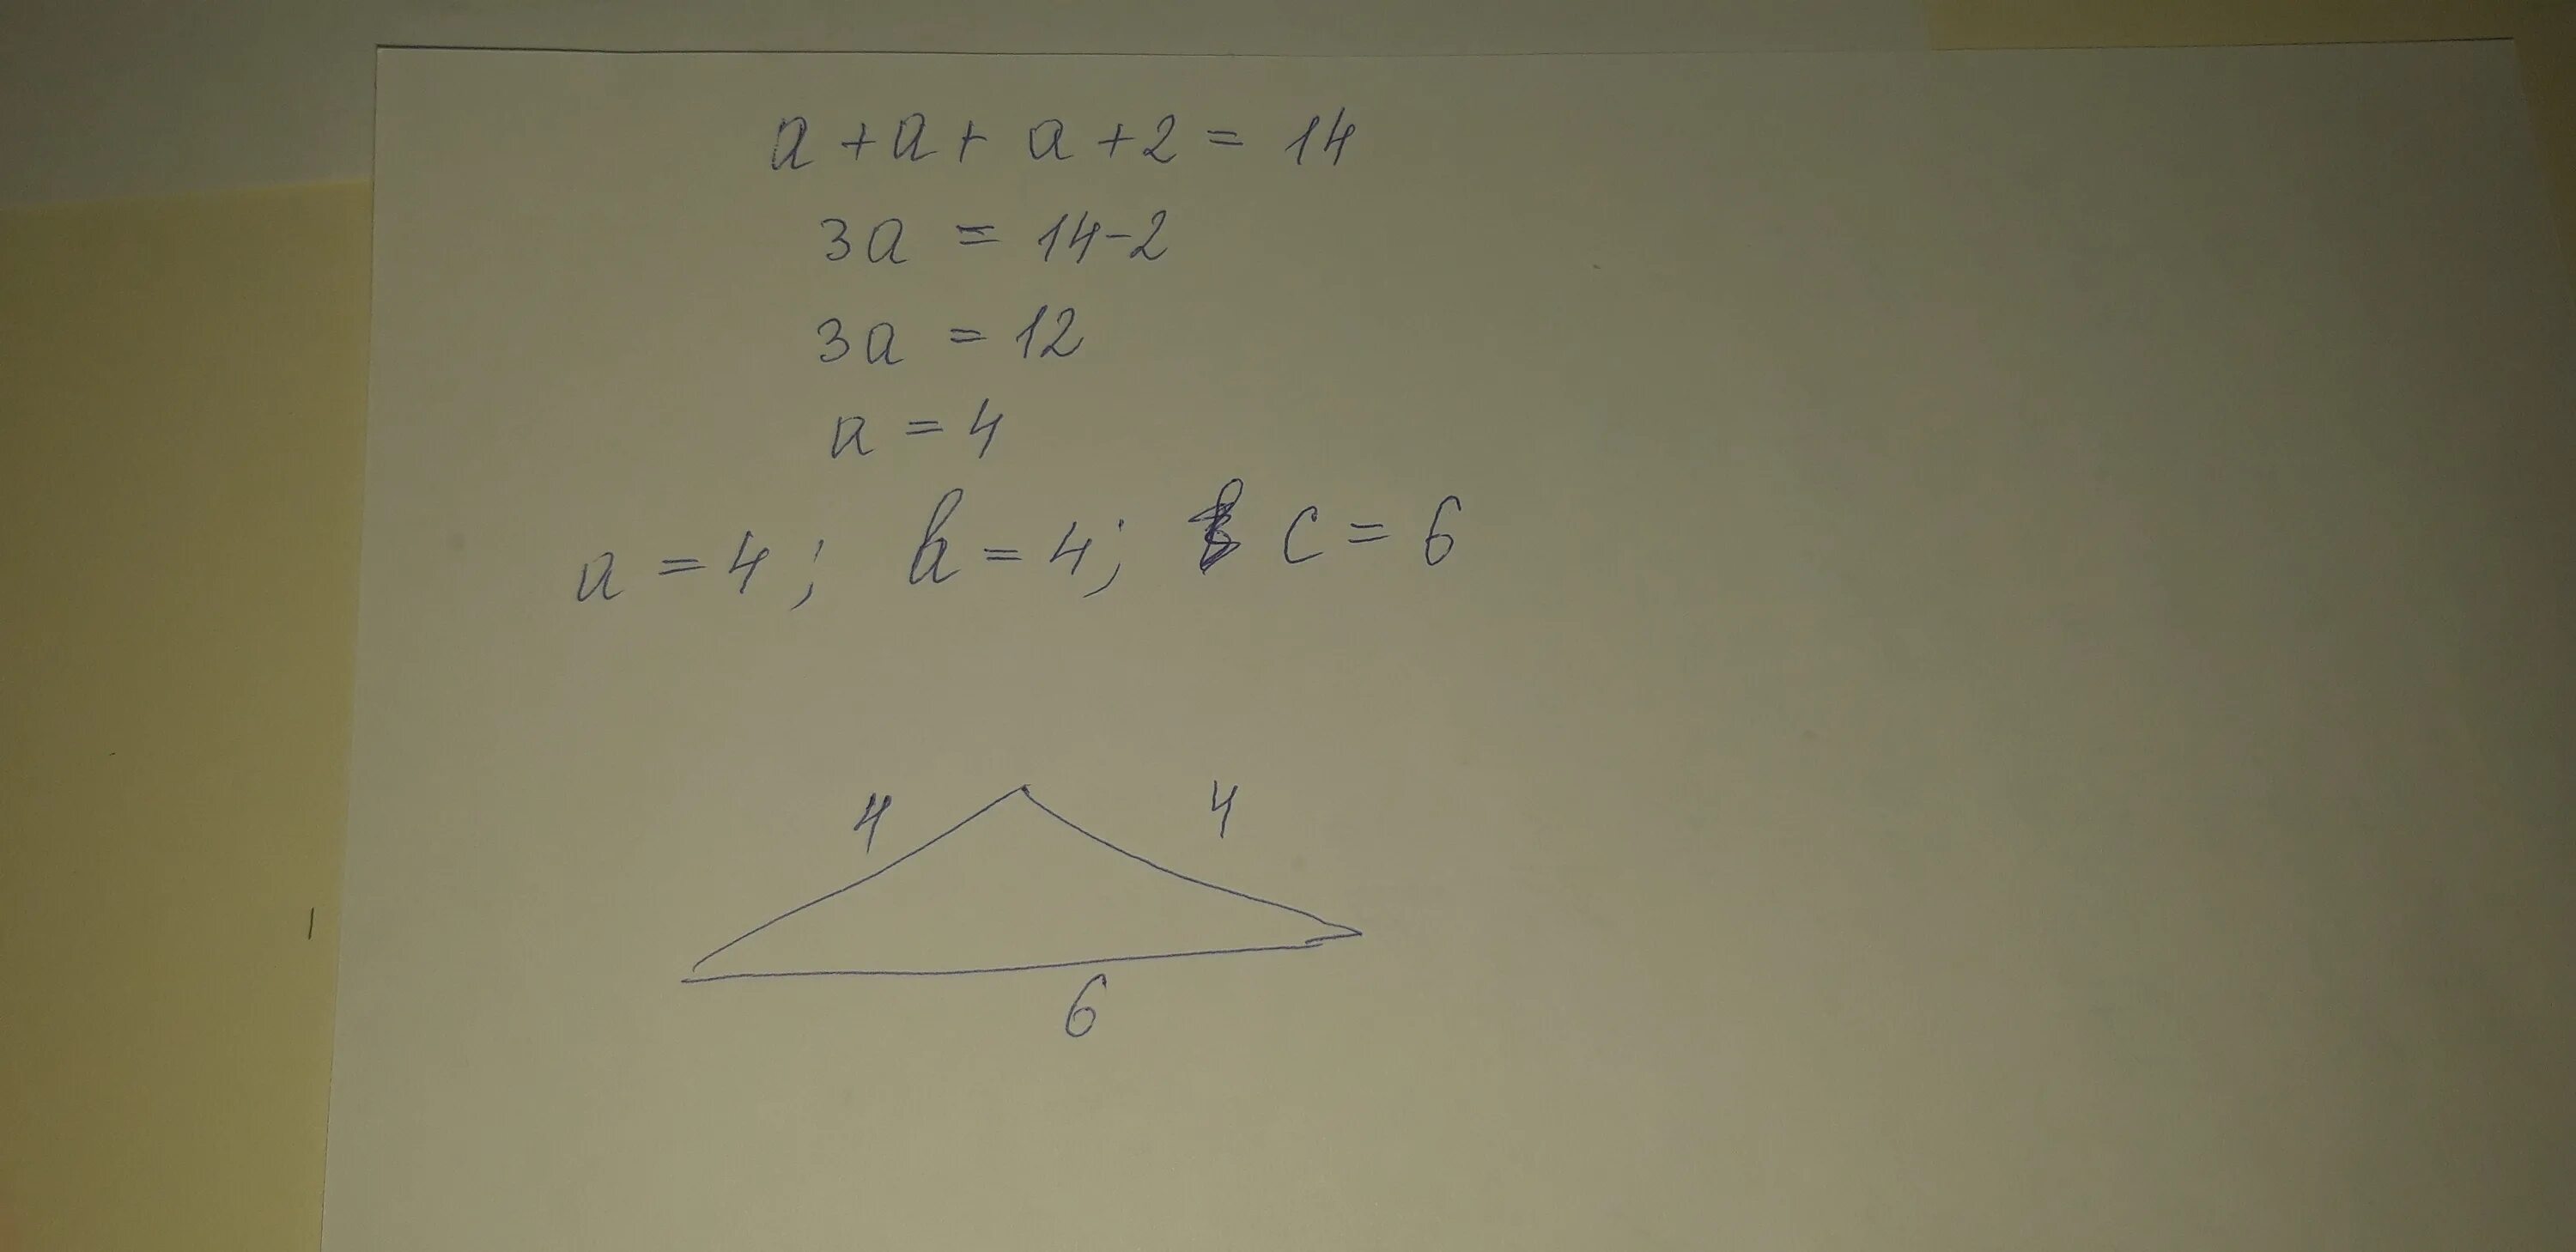 a + a + a + 2 = 14
3a = 14-2
3a = 12
a = 4
a = 4; b = 4; c = 6
4 4
6